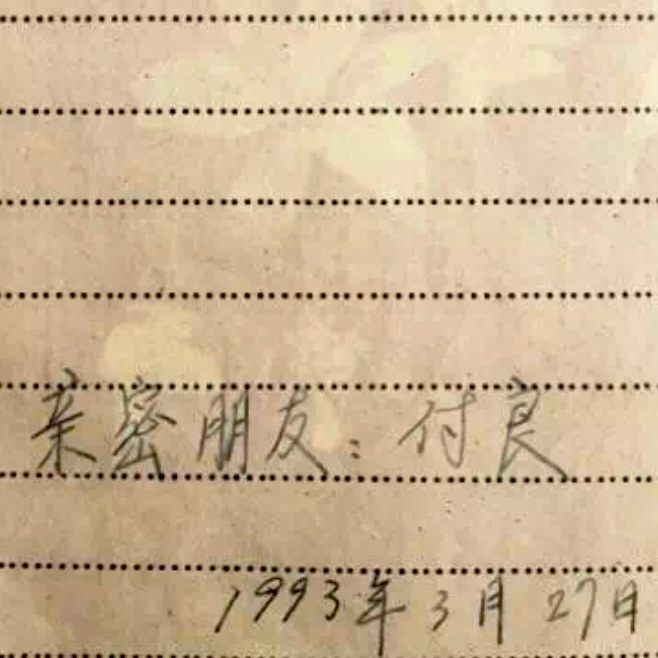 亲密朋友：付良
1993年3月27日